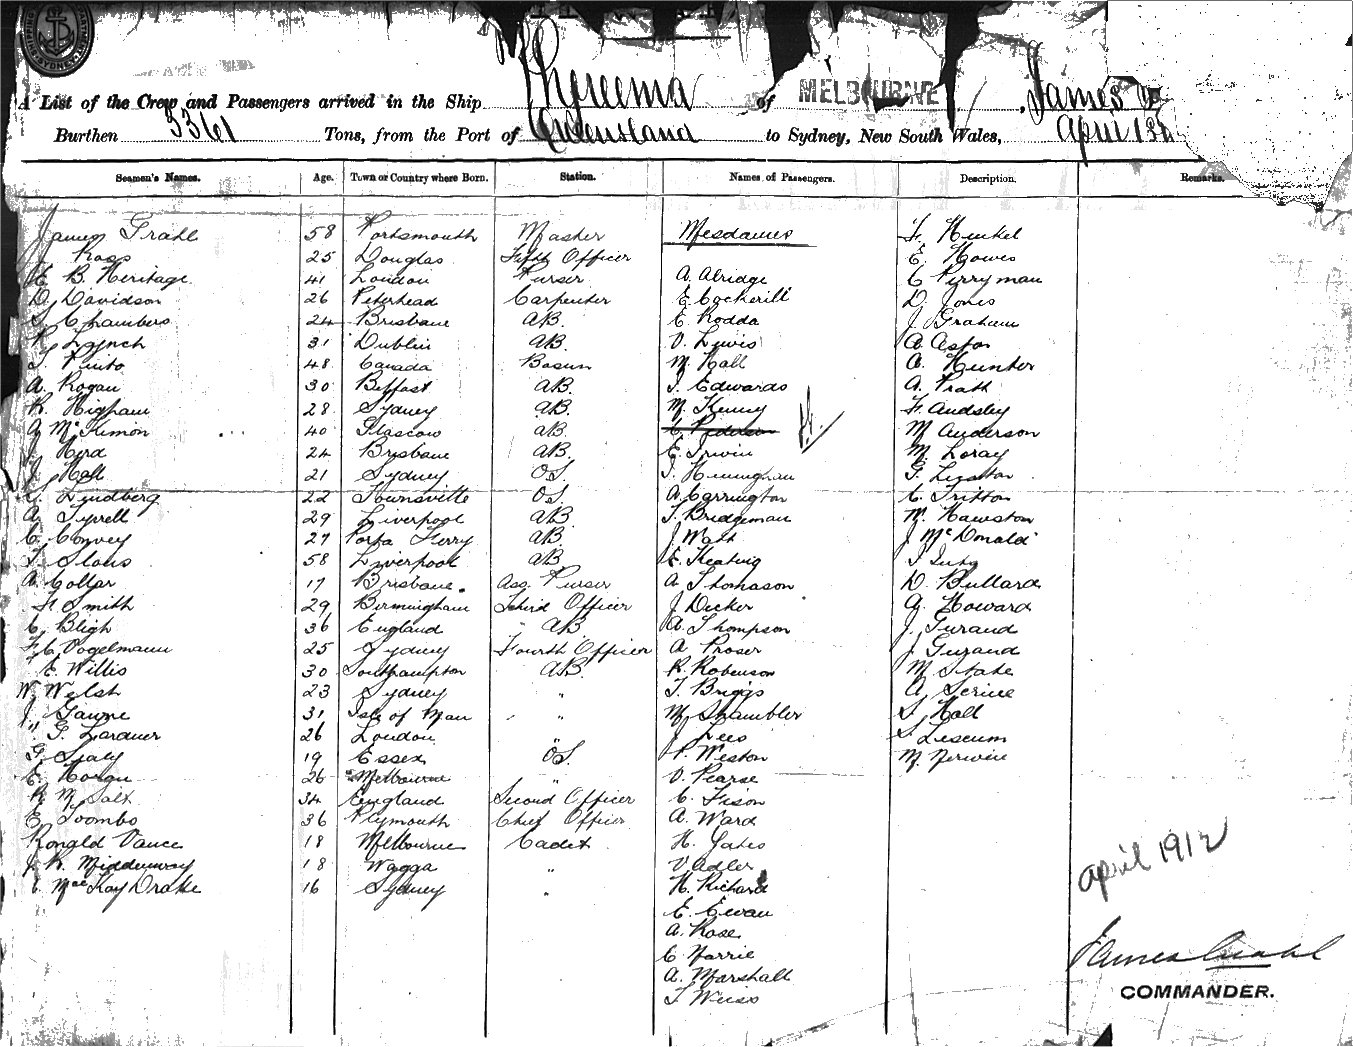 A List of the Crew and Passengers arrived in the Ship Wyreema of MELBOURNE, James
Burthen 3361 Tons, from the Port of Queensland to Sydney, New South Wales, April 13th
Seamen's Names. Age. Town or Country where Born. Station. Names of Passengers. Description. Remarks.
James Grahl 58 Portsmouth Master Mesdames F. Henkel
J. Ross 25 Douglas Fifth Officer E. Howes
E. B. Heritage 41 London Purser A. Alridge C. Perryman
D. Davidson 26 Peterhead Carpenter E. Cockerill D. Jones
Chambers 24 Brisbane AB. E. Rodda J. Graham
Lynch 31 Dublin AB. V. Lewis A. Aston
Pinto 48 Canada Bosun M. Hall A. Hunter
A. Rogan 30 Belfast AB. T. Edwards A. Prath
R. Higham 28 Sydney AB. M. Kenny F. Audsley
A. McKimon 40 Glascow AB. C. Pedersen M. Anderson
J. Herd 24 Brisbane AB. E. Irwin M. Loray
J. Hall 21 Sydney OS. Henningham G.
Lyndberg 22 Townsville OS. A. Carrington C. Tritton
A. Tyrrell 29 Liverpool AB. T. Bridgeman M. Hawston
C. Convey 27 Porta Ferry AB. J. Watt J. McDonald
58 Liverpool AB. E. Keating
A. Collar 17 Brisbane Ass. Purser A. Thomason D. Bullard
F. Smith 29 Birmingham Third Officer J. Decker A. Howard
C. Bligh 36 England " AB A. Thompson J. Gurand
F. C. Vogelmann 25 Sydney Fourth Officer A. Proser J. Gurand
E. Willis 30 Southampton AB. R. Robinson M. State
W. Welsh 23 Sydney " T. Briggs A. Scrive
J. Gawne 31 Isle of Man " M. Shambler S. Hall
" G. Lardner 26 London " J. Lees S. Liscum
G. 19 Essex OS. P. Weston M. Nerwin
E. Horgu 26 Melbourne " V. Pearse
R. M. Salt 34 England Second Officer C. Fison
E. Toombs 36 Plymouth Chief Officer A. Ward
Ronald Vance 18 Melbourne Cadet H. Yates
J. R. Middenway 18 Wagga " V. Adler
MacKay Drake 16 Sydney " H. Richard
E. Ewan
A. Rose
C. Norrie
A. Marshall
T. Weiss
April 1912
James Grahl
COMMANDER.